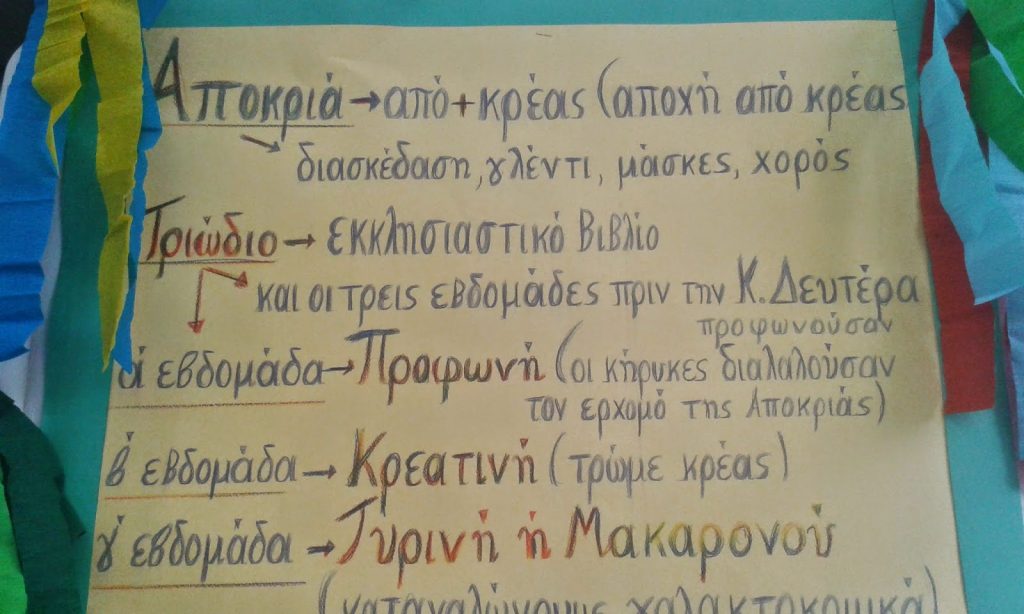 Αποκριά → από + κρέας (αποχή από κρέας
διασκέδαση, γλέντι, μάσκες, χορός
Τριώδιο → εκκλησιαστικό βιβλίο
και οι τρεις εβδομάδες πριν την Κ. Δευτέρα
προφωνούσαν
ά εβδομάδα → Προφωνή (οι κήρυκες διαλαλούσαν
τον ερχομό της Αποκριάς)
β́ εβδομάδα → Κρεατινή (τρώμε κρέας)
γ́ εβδομάδα → Τυρινή ή Μακαρονού
(καταναλώνουμε γαλακτοκομικά)